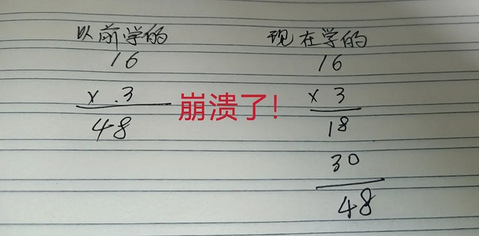 以前学的
16
× .3
48
崩溃了！
现在学的
16
× 3
18
30
48